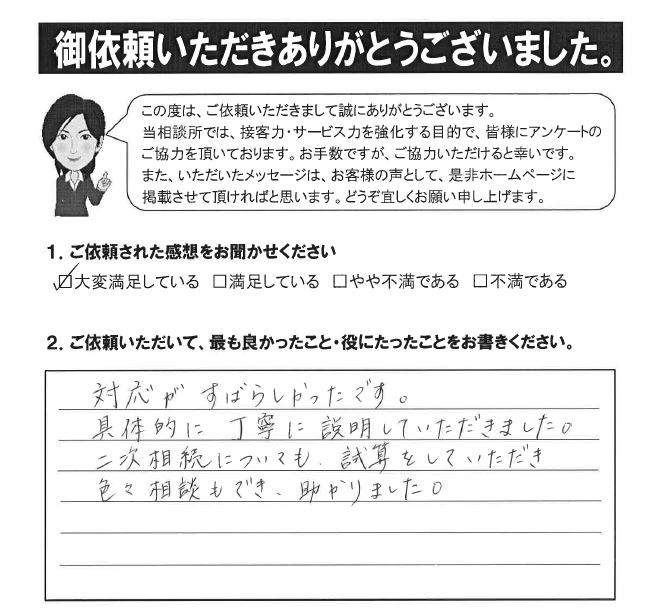 御依頼いただきありがとうございました。
この度は、ご依頼いただきまして誠にありがとうございます。
当相談所では、接客力・サービス力を強化する目的で、皆様にアンケートの
ご協力を頂いております。お手数ですが、ご協力いただけると幸いです。
また、いただいたメッセージは、お客様の声として、是非ホームページに
掲載させて頂ければと思います。どうぞ宜しくお願い申し上げます。
1. ご依頼された感想をお聞かせください
☑大変満足している □満足している □やや不満である □不満である
2. ご依頼いただいて、最も良かったこと・役にたったことをお書きください。
対応がすばらしかったです。
具体的に丁寧に説明していただきました。
二次相続についても、試算をしていただき
色々相談もでき、助かりました。